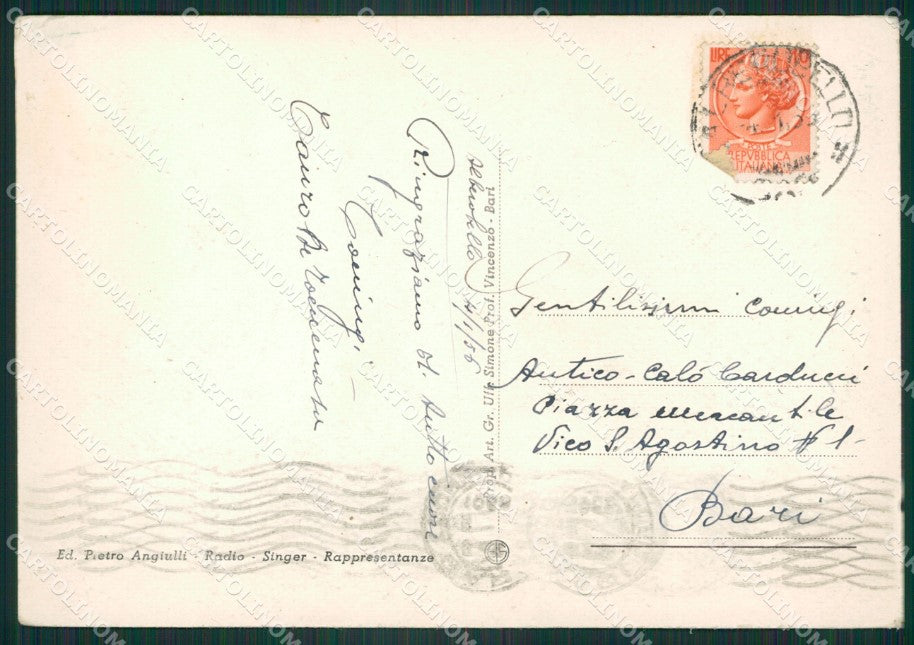 Alberobello 4/1/56
Ringraziamo di tutto cuore
Coniugi
LIRE 10
POSTE
REPVBBLICA
ITALIANA
Gentilissimi Coniugi
Antico-Caló Carducci
Piazza Mercantile
Vico S. Agostino N 1-
Bari
Fot. Art. Gr. Ulia Simone Prof. Vincenzo - Bari
Ed. Pietro Angiulli - Radio - Singer - Rappresentanze
CARTOLINOMANIA